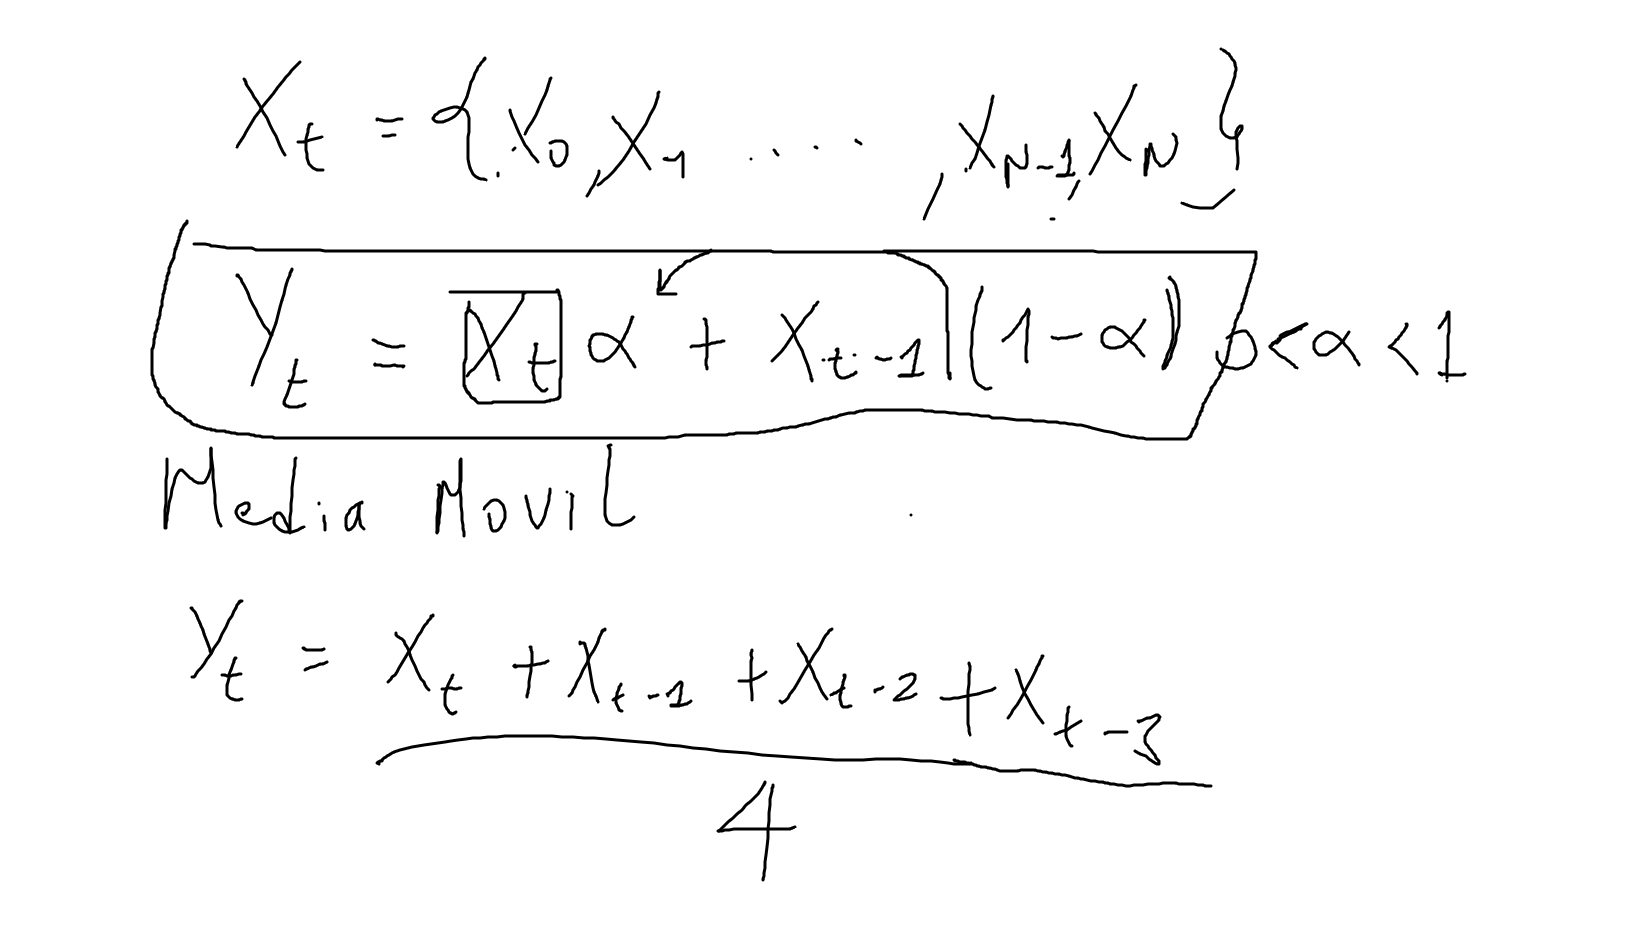 X_t = {X_0, X_1 ....., X_{N-1}, X_N}
Y_t = X_t α + X_{t-1} (1-α) 0<α<1
Media Movil
Y_t = X_t + X_{t-1} + X_{t-2} + X_{t-3}
4